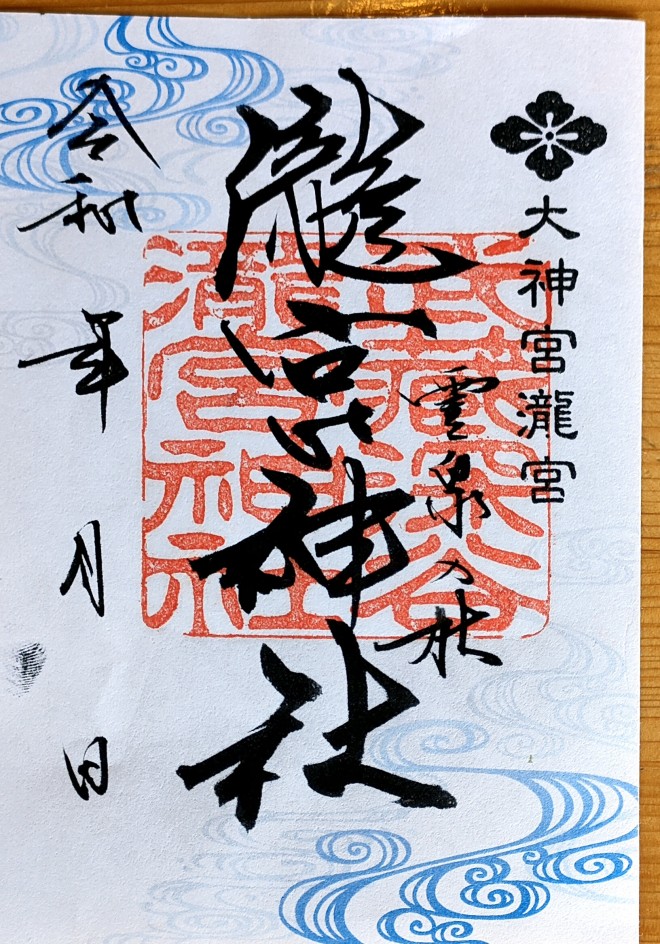 大神宮瀧宮
霊泉の杜
瀧宮神社
武蔵深谷
瀧宮神社
令和 年 月 日